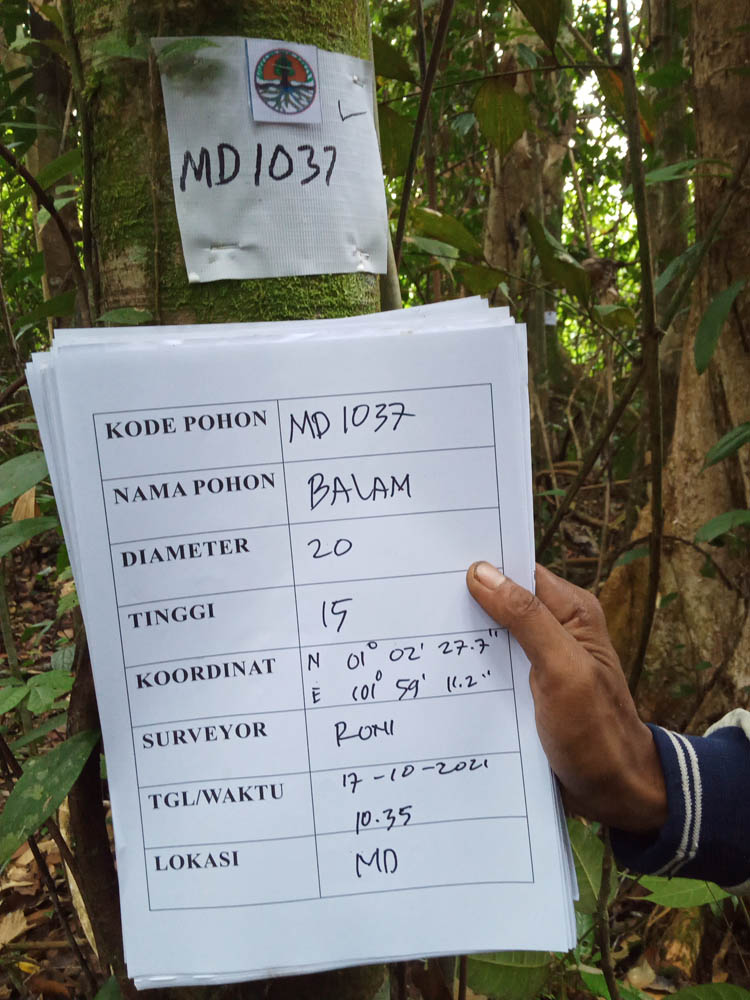 MD1037
KODE POHON MD 1037
NAMA POHON BALAM
DIAMETER 20
TINGGI 15
KOORDINAT N 01° 02' 27.7"
E 101° 59' 11.2"
SURVEYOR RONI
TGL/WAKTU 17-10-2021
10.35
LOKASI MD